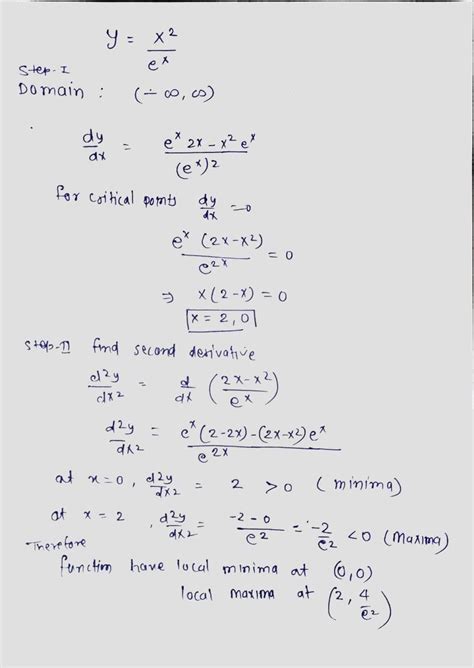 y = x²/e^x
Step-I
Domain : (-∞, ∞)
dy/dx = (e^x 2x - x² e^x)/(e^x)²
for critical points dy/dx = 0
e^x (2x-x²)/e^2x = 0
⇒ x(2-x) = 0
x = 2, 0
Step-II find second derivative
d²y/dx² = d/dx ((2x-x²)/e^x)
d²y/dx² = (e^x(2-2x)-(2x-x²)e^x)/e^2x
at x=0, d²y/dx² = 2 >0 (minima)
at x = 2, d²y/dx² = (-2-0)/e² = -2/e² <0 (Maxima)
Therefore
function have local minima at (0,0)
local maxima at (2, 4/e²)